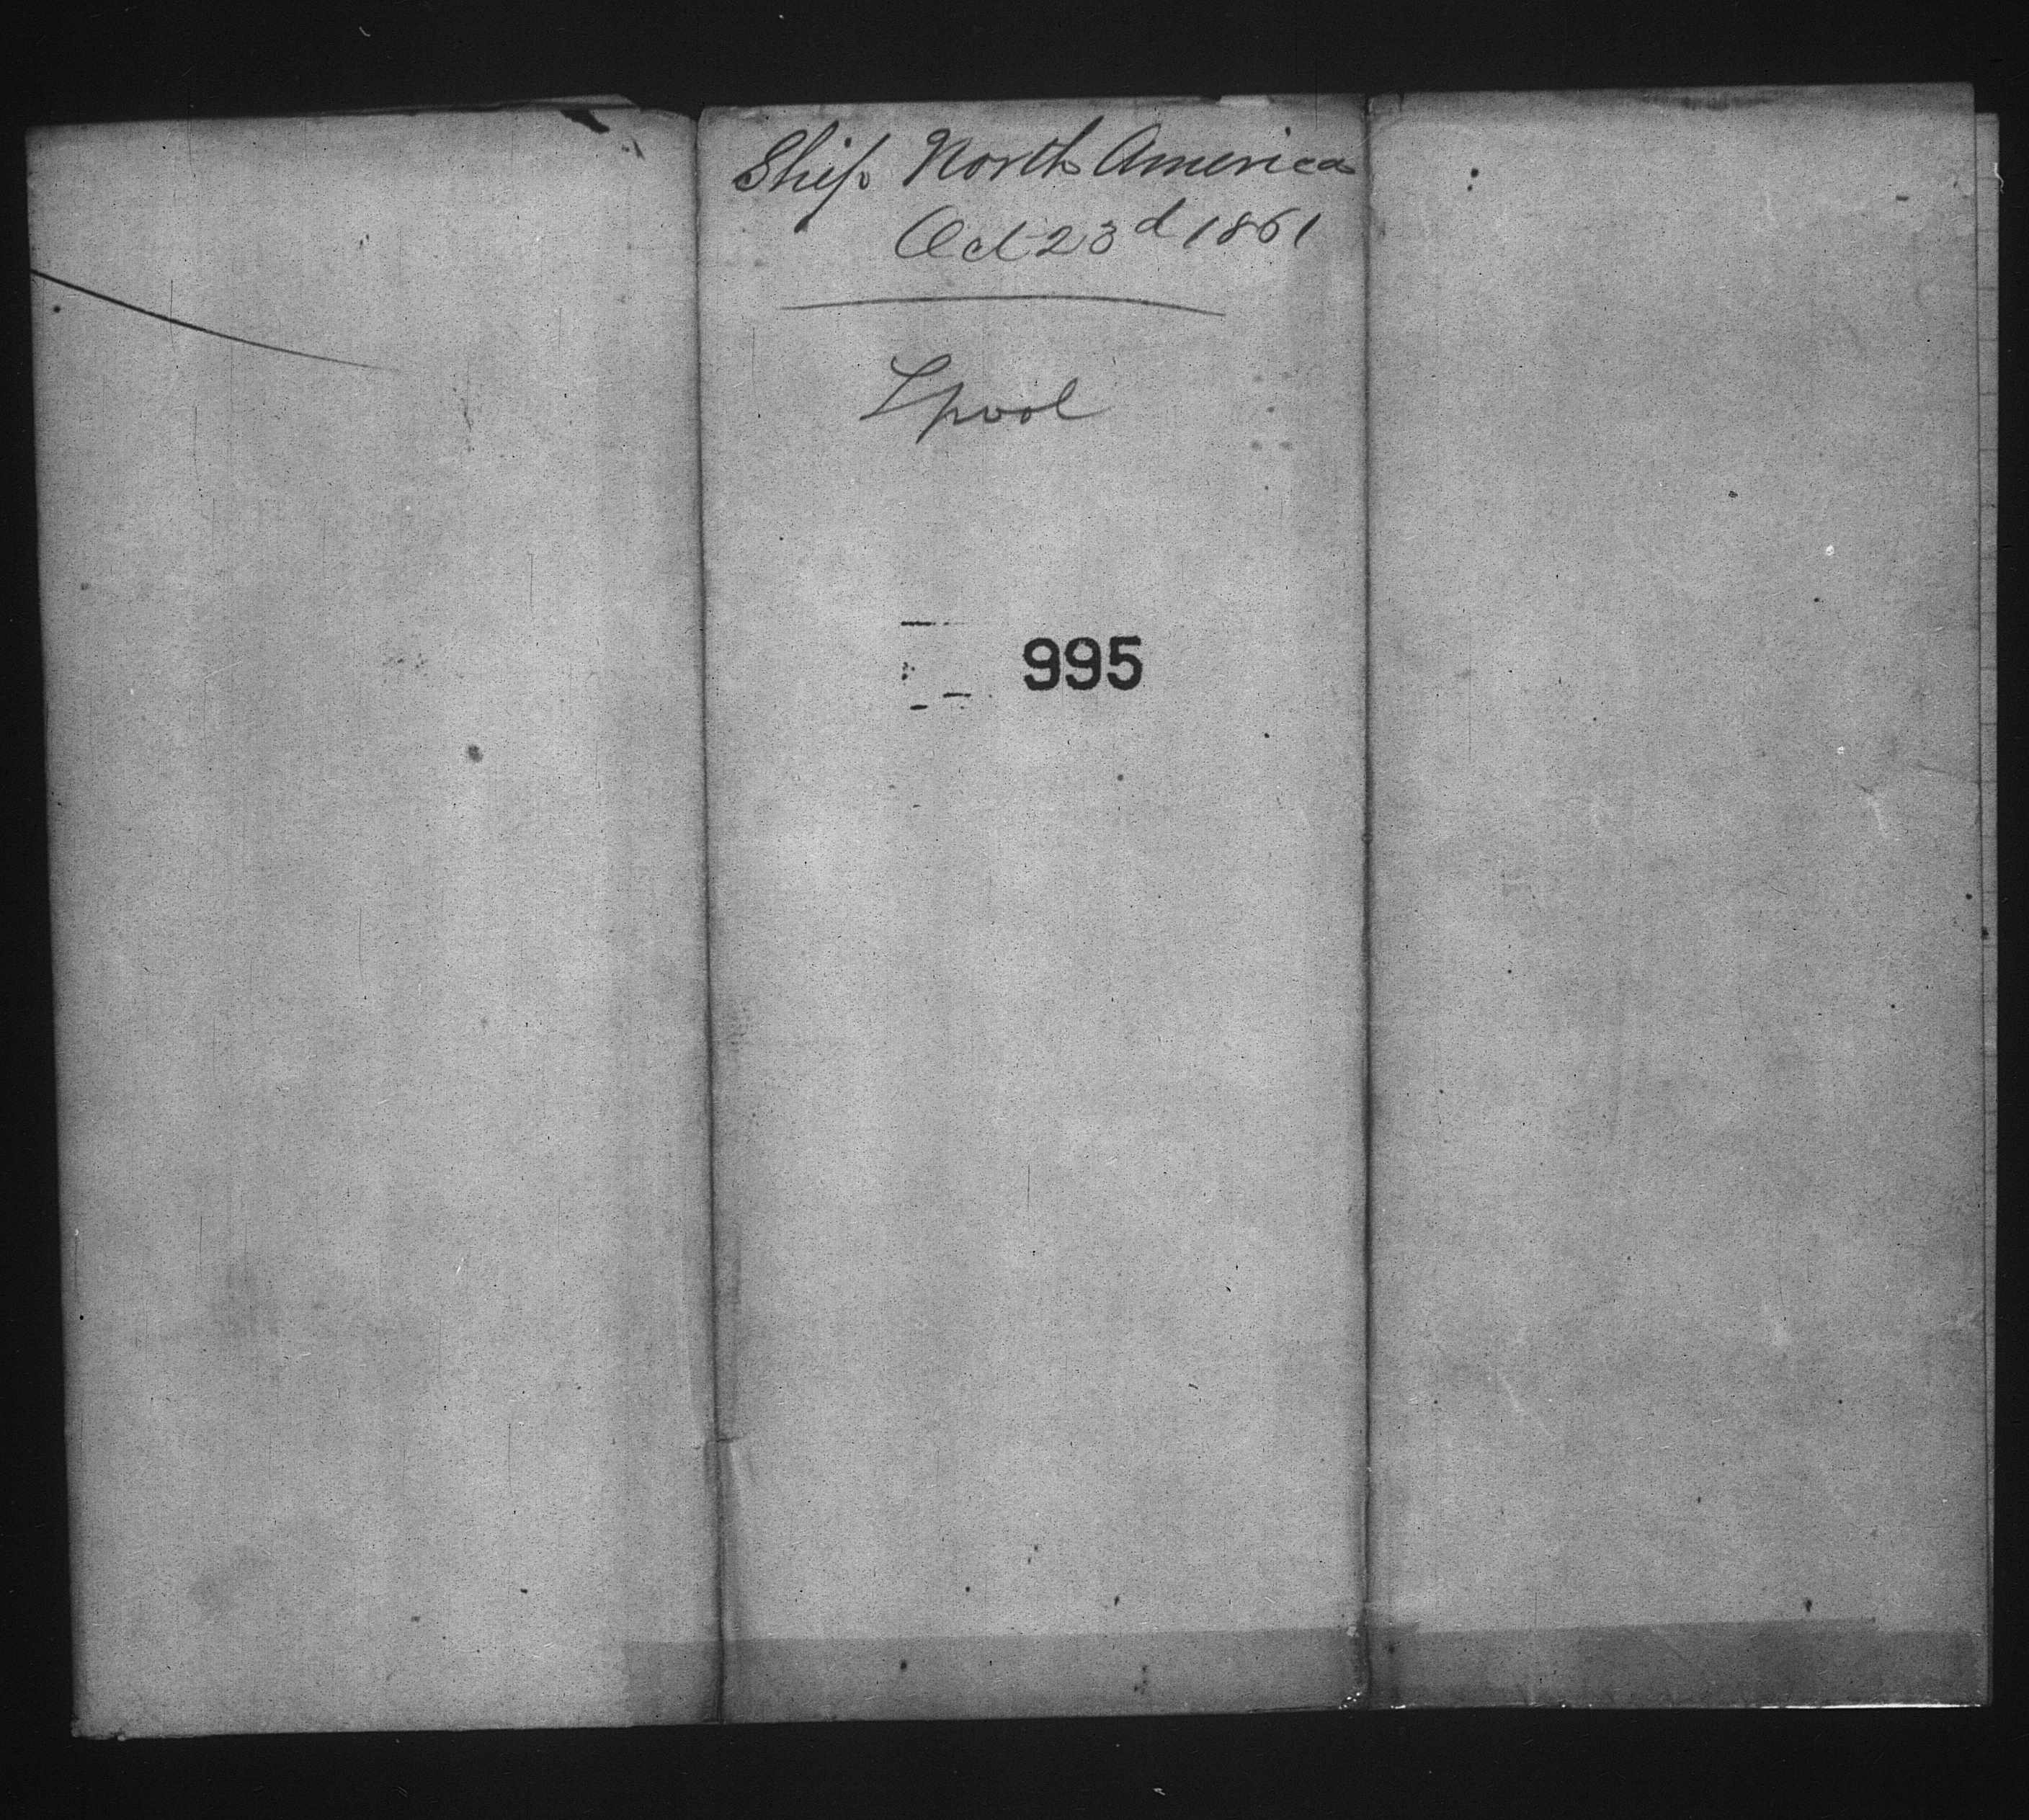 Ship North America
Oct 23d 1861
Lpool
995